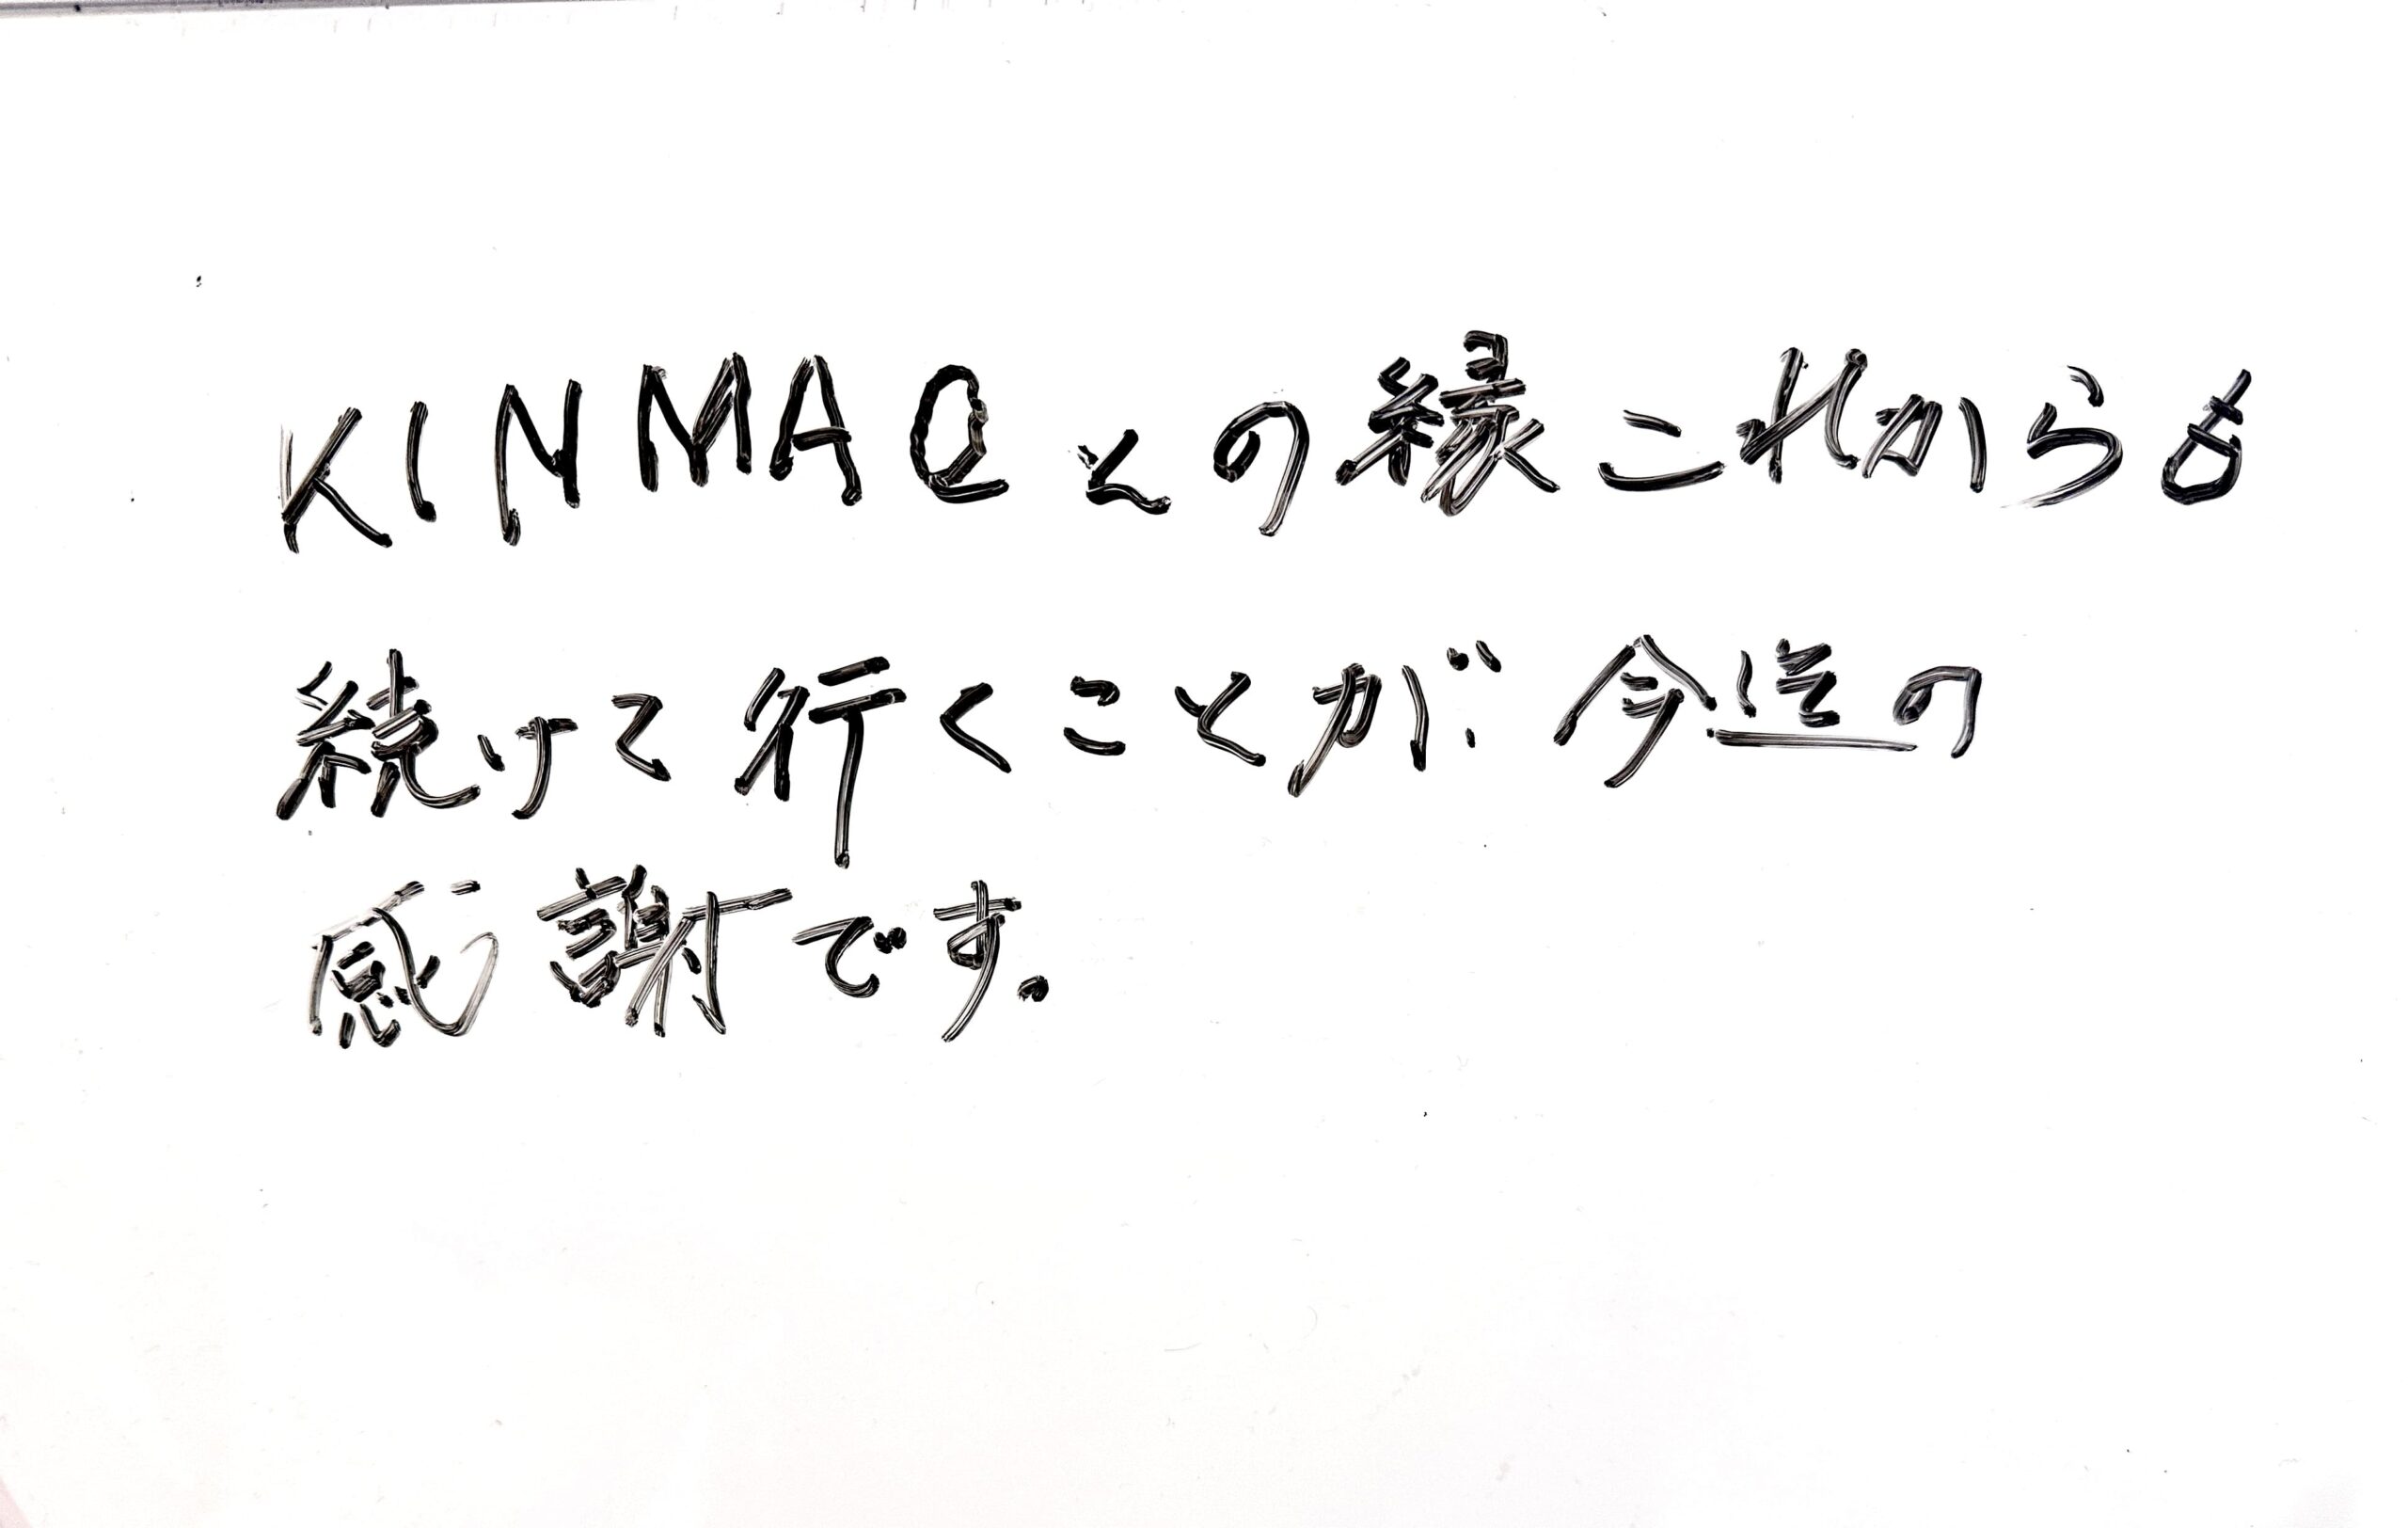 KINMAQとの縁これからも
続けて行くことが、今迄の
感謝です。